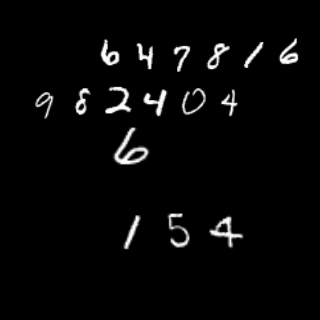 647816
982404
6
154